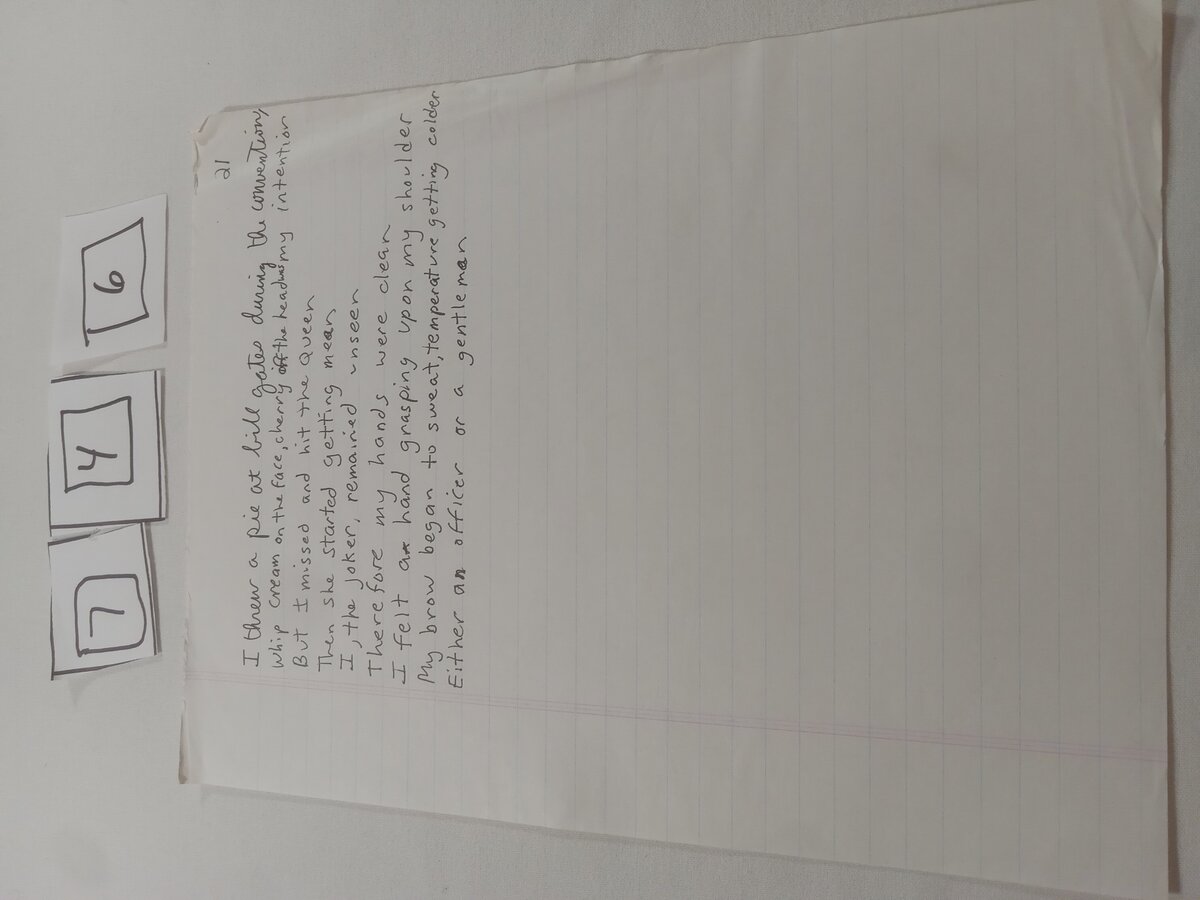 7 4 6
21
I threw a pie at bill gates during the convention,
whip cream on the face, cherry off the head was my intention
But I missed and hit the Queen
Then she started getting mean
I, the joker, remained unseen
Therefore my hands were clean
I felt a hand grasping upon my shoulder
My brow began to sweat, temperature getting colder
Either an officer or a gentleman